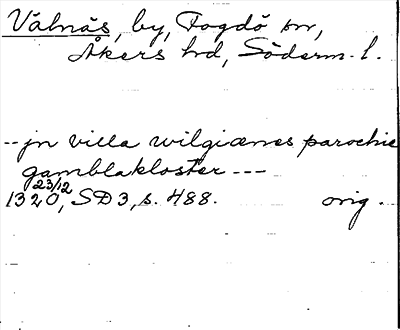 Vålnäs, by, Fogdö sn,
Åkers hrd, Söderm. l.
-- jn villa wilgiænæs parochie
gamblakloster ---
23/12
1320, SD 3, s. 488. orig.